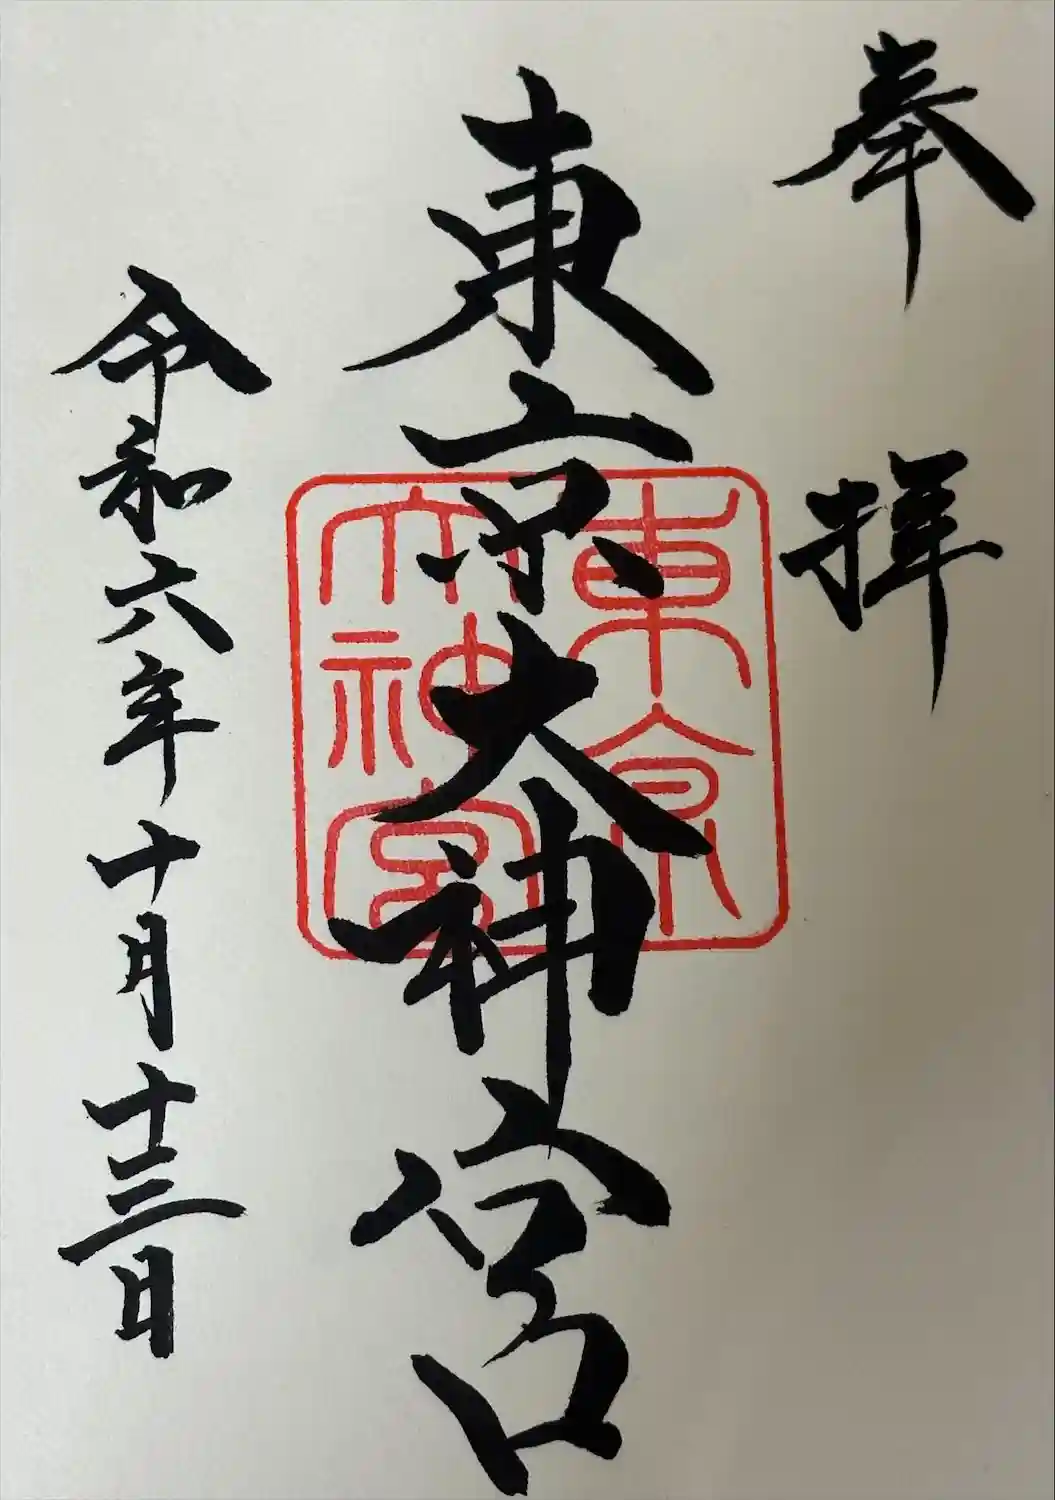 奉拝
東京大神宮
東京
大神宮
令和六年十月十三日